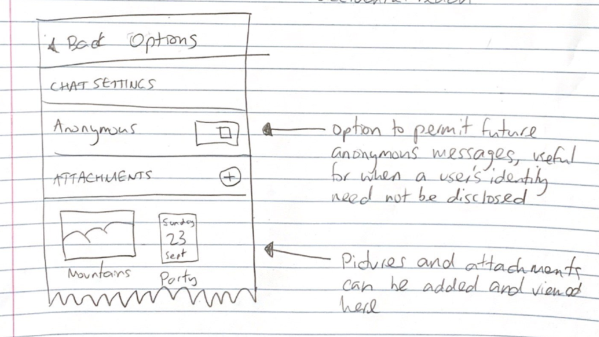 Bad Options
CHAT SETTINGS
Anonymous
ATTACHMENTS
Mountains
Sunday
23
Sept
Party
Option to permit future
anonymous messages, useful
for when a user's identity
need not be disclosed
Pictures and attachments
can be added and viewed
here